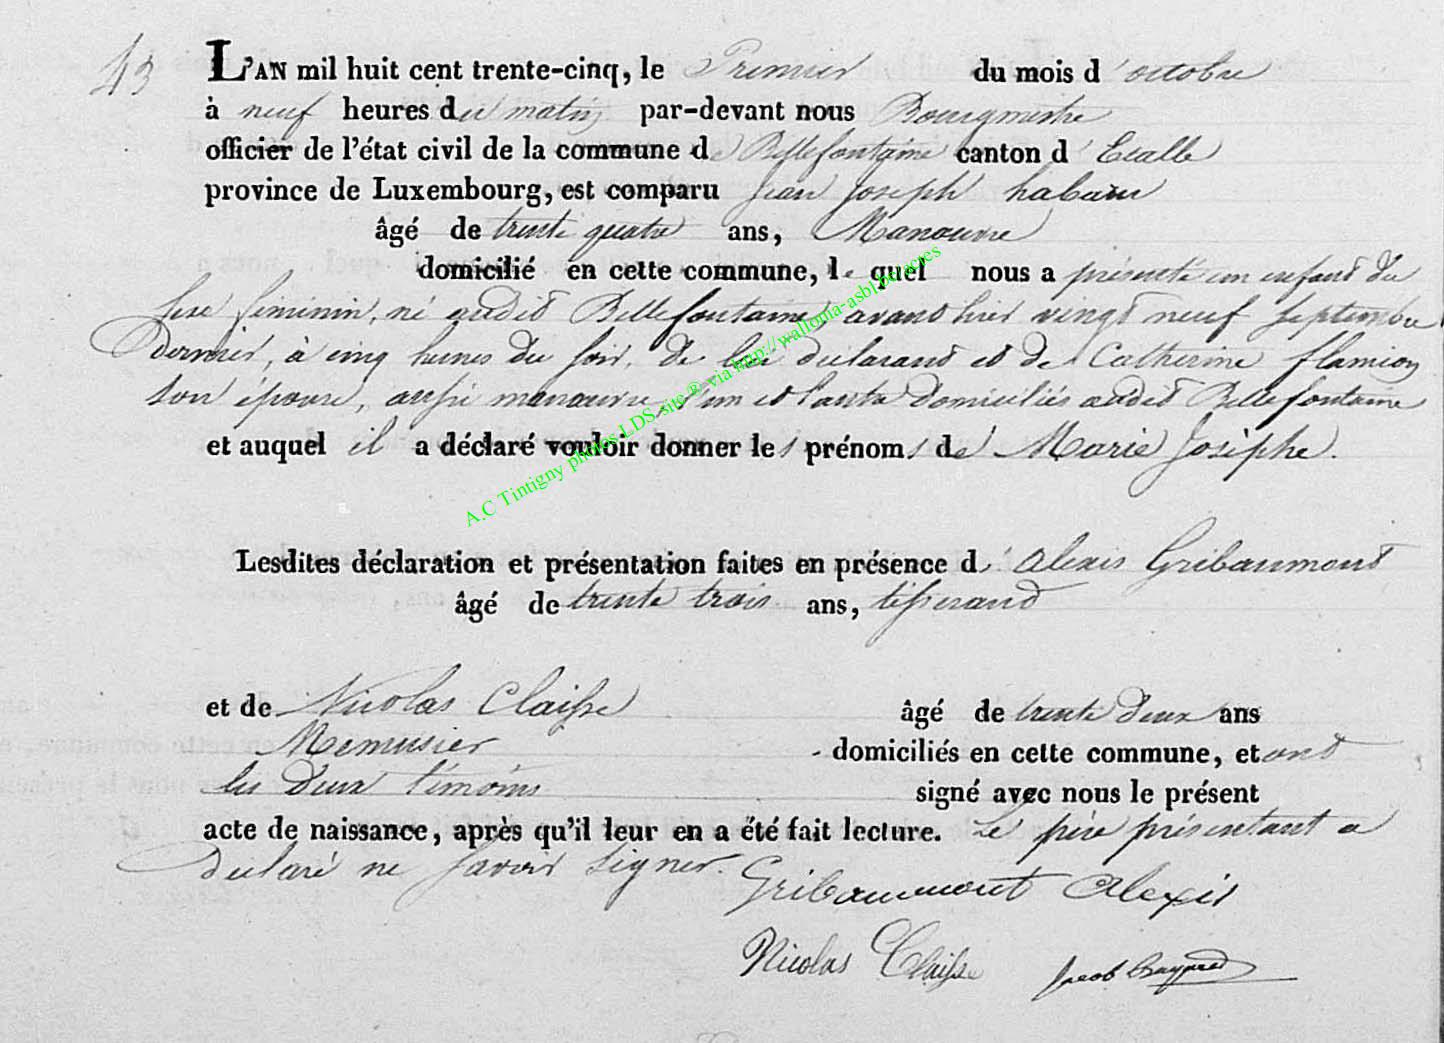 43
L'AN mil huit cent trente-cinq, le Premier du mois d'octobre
à neuf heures du matin par-devant nous Bourgmestre
officier de l'état civil de la commune de Bellefontaine canton d'Etalle
province de Luxembourg, est comparu Jean Joseph habaru
âgé de trente quatre ans, Manœuvre
domicilié en cette commune, le quel nous a présenté un enfant du
sexe féminin, né audit Bellefontaine, avant hier vingt neuf septembre
dernier, à cinq heures du soir, de lui déclarant et de Catherine flamion
son épouse, aussi manœuvre, l'un et l'autre domiciliés audit Bellefontaine
et auquel il a déclaré vouloir donner les prénoms de Marie Josèphe.
Lesdites déclaration et présentation faites en présence d'alexis Gribaumont
âgé de trente trois ans, tisserand
et de Nicolas Claisse âgé de trente deux ans
Menusier domiciliés en cette commune, et ont
les deux témoins signé avec nous le présent
acte de naissance, après qu'il leur en a été fait lecture. Le père présentant a
déclaré ne savoir signer. Gribaumont Alexis
Nicolas Claisse Jacob
A.C Tintigny photos LDS site ® via http://wallonia-asbl.be/actes